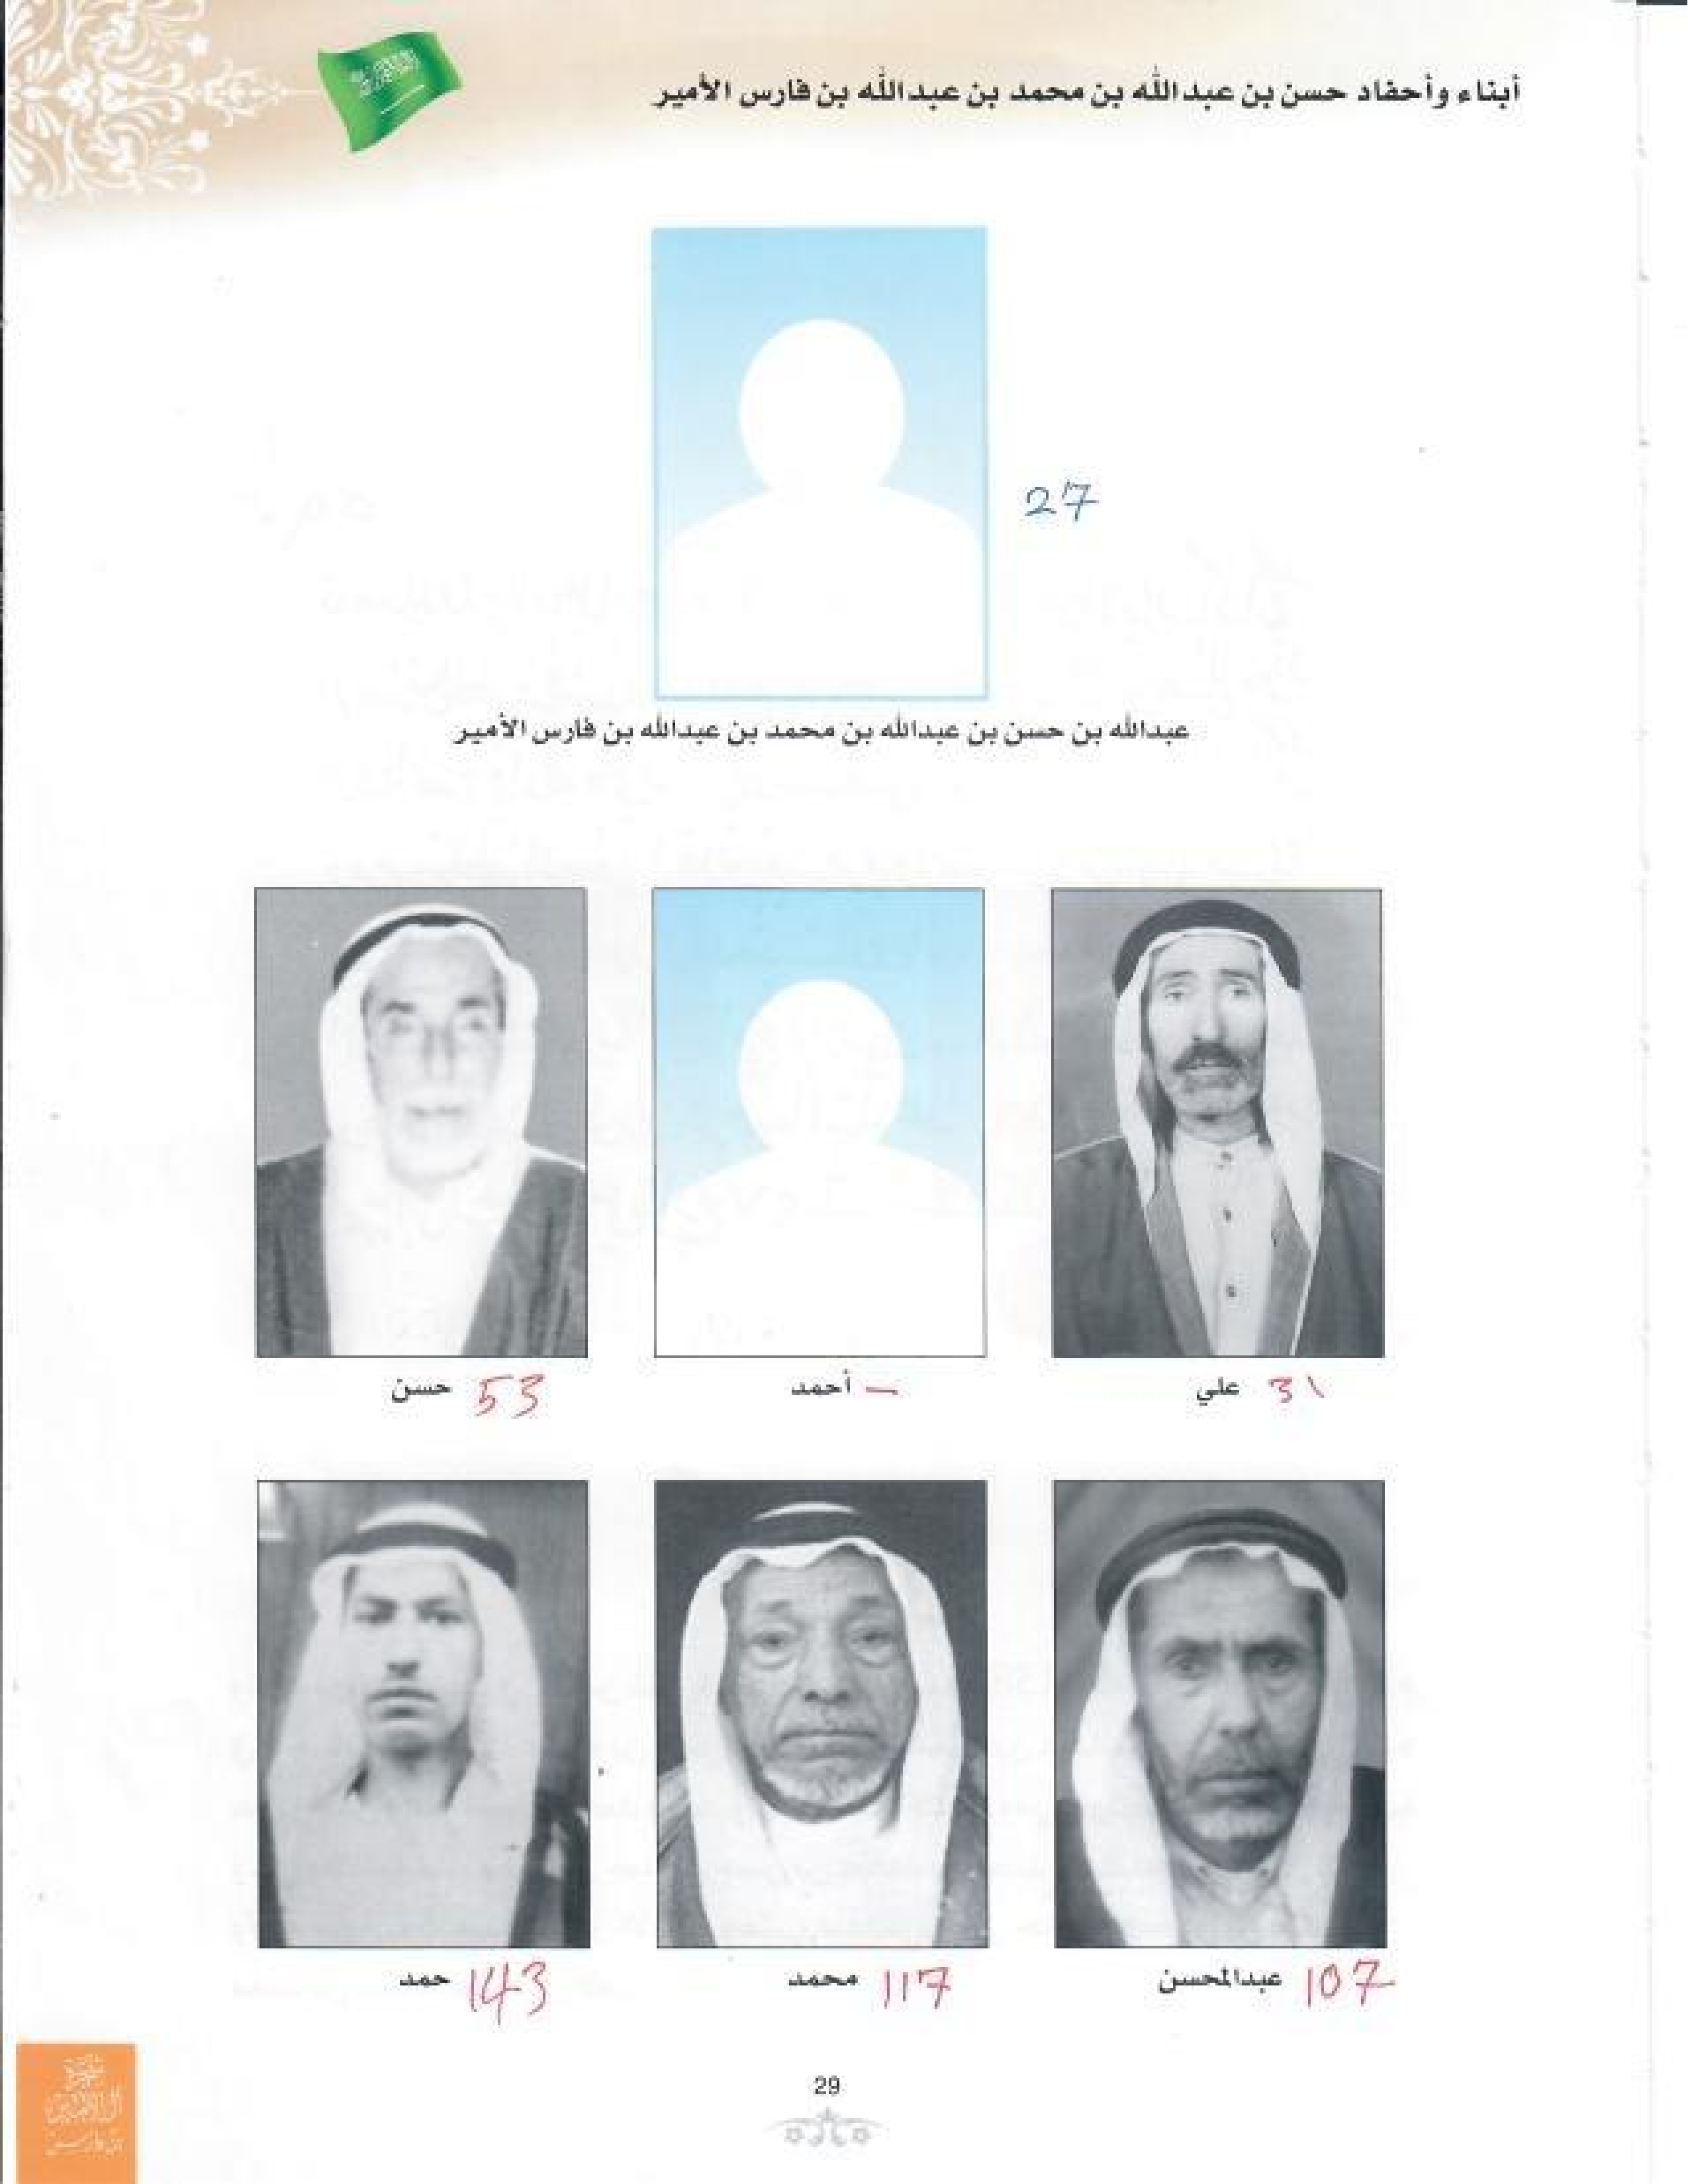 أبناء وأحفاد حسن بن عبدالله بن محمد بن عبدالله بن فارس الأمير
27
عبدالله بن حسن بن عبدالله بن محمد بن عبدالله بن فارس الأمير
علي 31
أحمد –
حسن 53
عبدالمحسن 107
محمد 117
حمد 143
29
شجرة
آل الأمير
بن فارس